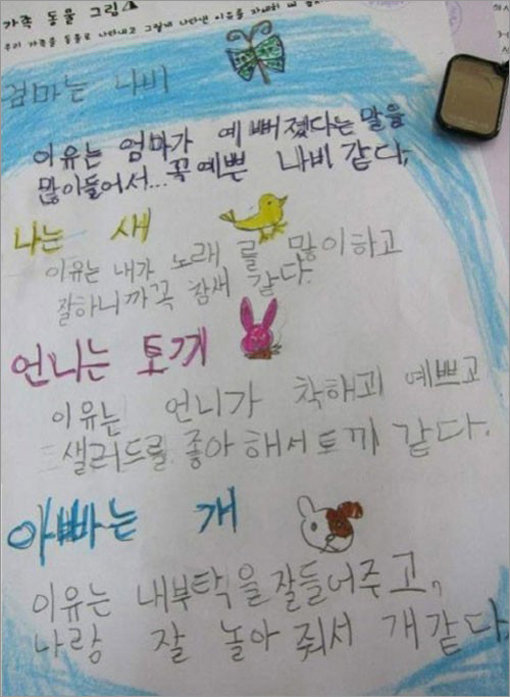 가족 동물 그림
우리 가족을 동물로 나타내고 그렇게 나타낸 이유를 자세히 써
엄마는 나비
이유는 엄마가 예뻐졌다는 말을
많이들어서... 꼭 예쁜 나비 같다,
나는 새
이유는 내가 노래를 많이하고
잘하니까꼭 참새 같다.
언니는 토끼
이유는 언니가 착해괴 예쁘고
샐러드를 좋아해서토끼 같다.
아빠는 개
이유는 내부탁을잘들어주고,
나랑 잘 놀아줘서 개같다